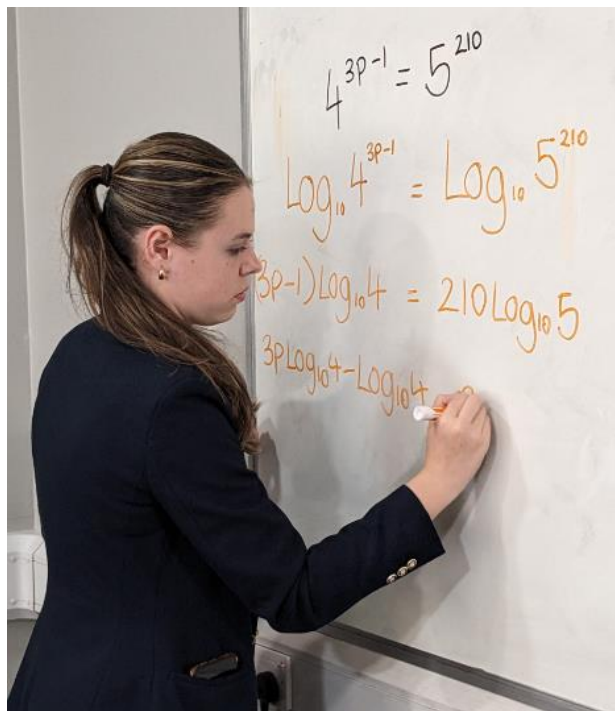 4^{3p-1} = 5^{210}
Log₁₀ 4^{3p-1} = Log₁₀ 5^{210}
3p-1)Log₁₀4 = 210Log₁₀5
3pLog₁₀4-Log₁₀4